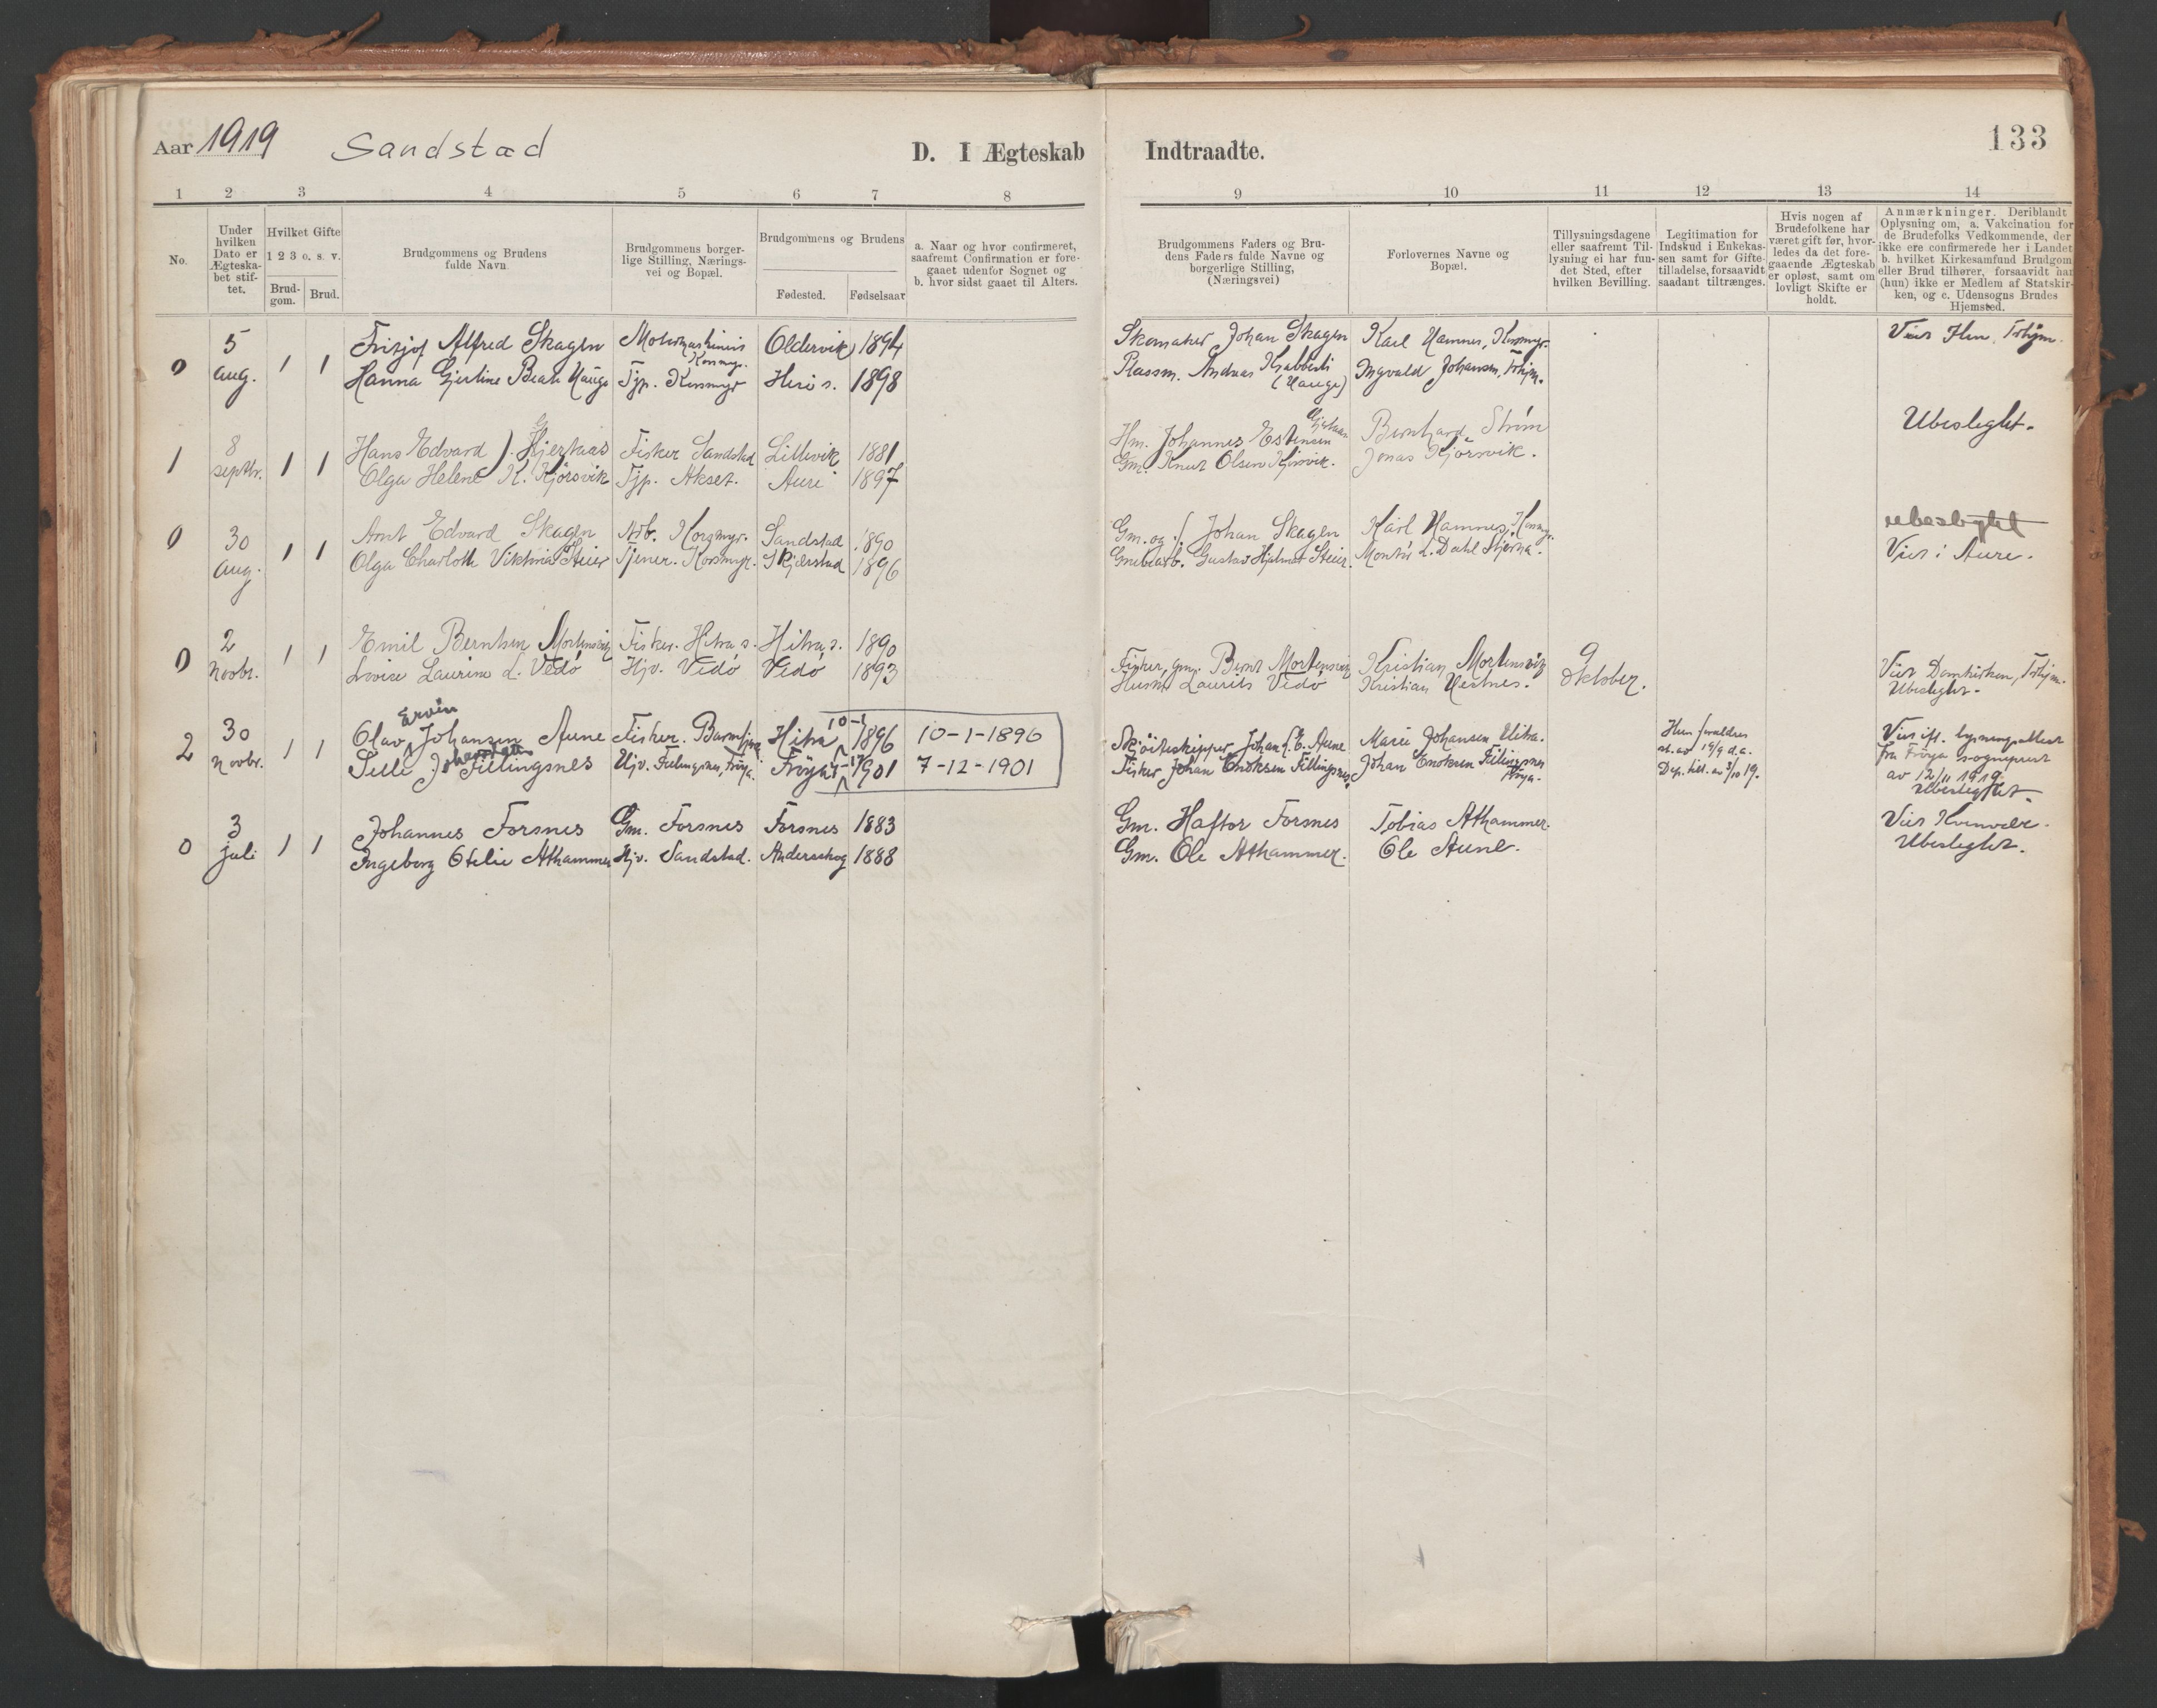 Aar 1919 Sandstad D. I Ægteskab Indtraadte. 133
1 2 3 4 5 6 7 8 9 10 11 12 13 14
No.
Under hvilken Dato er Ægteska- bet stif- tet.
Hvilket Gifte
1 2 3 o. s. v.
Brud- gom. Brud.
Brudgommens og Brudens fulde Navn
Brudgommens borger- lige Stilling, Nærings- vei og Bopæl.
Brudgommens og Brudens
Fødested. Fødselsaar
a. Naar og hvor confirmeret, saafremt Confirmation er fore- gaaet udenfor Sognet og b. hvor sidst gaaet til Alters.
Brudgommens Faders og Bru- dens Faders fulde Navne og borgerlige Stilling, (Næringsvei)
Forlovernes Navne og Bopæl.
Tillysningsdagene eller saafremt Til- lysning ei har fun- det Sted, efter hvilken Bevilling.
Legitimation for Indskud i Enkekas- sen samt for Gifte- tilladelse, forsaavidt saadant tiltrænges.
Hvis nogen af Brudefolkene har været gift før, hvor- ledes da det fore- gaaende Ægteskab er opløst, samt om lovligt Skifte er holdt.
Anmærkninger. Deriblandt Oplysning om, a. Vakcination for de Brudefolks Vedkommende, der ikke ere confirmerede her i Landet b. hvilket Kirkesamfund Brudgom eller Brud tilhører, forsaavidt han (hun) ikke er Medlem af Statskir- ken, og c. Udensogns Brudes Hjemsted.
0 5 aug. 1 1 Fritjof Alfred Skagen Motormaskinist Korsmyr. Oldervik 1894 Skomaker Johan Skagen Karl Hamnes, Korsmyr. Viet Hen, Trhjm.
Hanna Gjertine Beate Hauge Tjp. Korsmyr 1898 Plassm. Andreas (Hauge) Ingvald Johansen, Trhjm.
1 8 septbr. 1 1 Hans Edvard J. Hjertaas Fisker Sandstad Littlevik 1881 Hm. Johannes Estensen Bernhard Ström Ubeslegtet.
Olga Helene K. Kjörsvik Tjp. Akset. Aure 1897 Gm. Knut Olsen Kjörsvik. Jonas Kjörsvik.
0 30 aug. 1 1 Arnt Edvard Skagen Arb. Korsmyr. Sandstad 1890 Gm. og f. Johan Skagen Karl Hamnes, Korsmyr. ubeslegtet
Olga Charlotte Viktoria Steier Tjener. Korsmyr. Skjerstad 1896 Grubearb. Gustav Hjalmar Steier. Montör L. Dahl Viet i Aure.
0 2 novbr. 1 1 Emil Berntsen Mortensvik Fisker. Hitra s. Hitra s. 1890 Fisker, gm. Bernt Mortensvik Kristian Mortensvik 9 oktober. Viet Domkirken, Trhjm.
Lovise Laurine L. Vedö Hjv. Vedö Vedö 1893 Husm. Laurits Vedö Kristian Vestnes. Ubeslegtet.
2 30 novbr. 1 1 Olav Ervin Johansen Aune Fisker. Hitra 10-1 1896 10-1-1896 Skjöiteskipper Johan E. Aune Marie Johansen Hitra. Viet ifl. lysningsattest
Selli Fillingsnes Hjv. Fillingsnes, Fröya. Fröya 7-12 1901 7-12-1901 Fisker Johan Enoksen Fillingsnes Johan Enoksen Fillingsnes Fröya. Dep. till. av 3/10 19. fra Fröya sogneprest
av 12/11 1919.
Ubeslegtet.
0 3 juli 1 1 Johannes Forsnes Gm. Forsnes Forsnes 1883 Gm. Haftor Forsnes Tobias Athammer. Viet Kvenvær.
Ingeborg Otelie Athammer Hjv. Sandstad. Anderskog 1888 Gm. Ole Athammer. Ole Aune. Ubeslegtet.